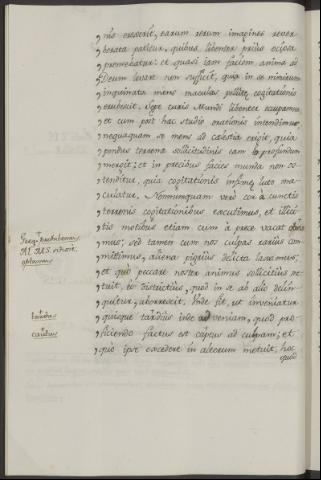 nis creverit, earum rerum imagines rever
berata patitur, quibus libenter prius otiosa
premebatur: et quasi iam faciem animæ ad
Deum levare non sufficit, quia in se mentem
inquinata mens maculas pollutæ cogitationis
erubescit. Sæpe curis Mundi libenter occupamur,
et cum post hac studio orationis intendimur
nequaquam se mens ad cælestia erigit, quia
pondus terrenæ sollicitudinis eam in profundum
mergit; et in precibus facies munda non os-
tenditur, quia cogitationis infimæ luto ma-
culatur. Nonnumquam vero cor a cunctis
terrenis cogitationibus excutimus, et illici-
tis motibus etiam cum a prece vacat obvia
mus; sed tamen cum nos culpas rarius com
mittimus, aliena pigrius delicta laxamus;
et quo peccare noster animus sollicitius me
tuit, eo districtius, quod in se ab alio delin
quitur, abhorrescit. Unde fit, ut inveniatur
quisque tardius inde ad veniam, quod pro-
ficiendo factus est cautus ad culpam; et
quo ipse excedere in alterum metuit, hoc
quod
tardus
cautus